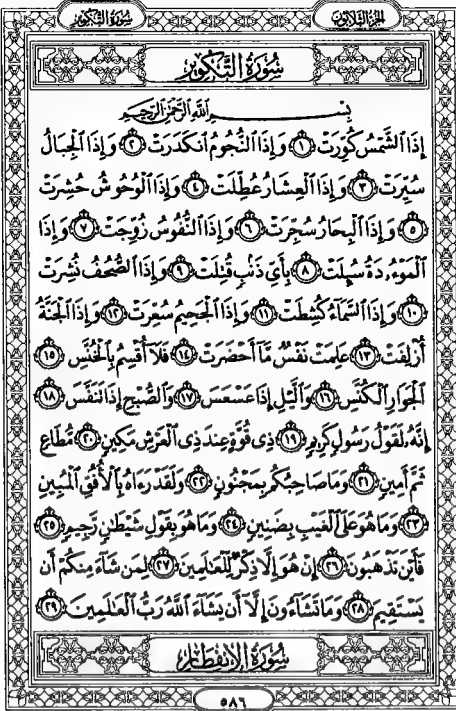 الجزء الثلاثون
سورة التكوير
سُورَةُ التَّكْوِيرِ
بِسْمِ ٱللَّهِ ٱلرَّحْمَٰنِ ٱلرَّحِيمِ
إِذَا ٱلشَّمْسُ كُوِّرَتْ ١ وَإِذَا ٱلنُّجُومُ ٱنكَدَرَتْ ٢ وَإِذَا ٱلْجِبَالُ
سُيِّرَتْ ٣ وَإِذَا ٱلْعِشَارُ عُطِّلَتْ ٤ وَإِذَا ٱلْوُحُوشُ حُشِرَتْ
٥ وَإِذَا ٱلْبِحَارُ سُجِّرَتْ ٦ وَإِذَا ٱلنُّفُوسُ زُوِّجَتْ ٧ وَإِذَا
ٱلْمَوْءُۥدَةُ سُئِلَتْ ٨ بِأَىِّ ذَنۢبٍ قُتِلَتْ ٩ وَإِذَا ٱلصُّحُفُ نُشِرَتْ
١٠ وَإِذَا ٱلسَّمَآءُ كُشِطَتْ ١١ وَإِذَا ٱلْجَحِيمُ سُعِّرَتْ ١٢ وَإِذَا ٱلْجَنَّةُ
أُزْلِفَتْ ١٣ عَلِمَتْ نَفْسٌ مَّآ أَحْضَرَتْ ١٤ فَلَآ أُقْسِمُ بِٱلْخُنَّسِ ١٥
ٱلْجَوَارِ ٱلْكُنَّسِ ١٦ وَٱلَّيْلِ إِذَا عَسْعَسَ ١٧ وَٱلصُّبْحِ إِذَا تَنَفَّسَ ١٨
إِنَّهُۥ لَقَوْلُ رَسُولٍ كَرِيمٍ ١٩ ذِى قُوَّةٍ عِندَ ذِى ٱلْعَرْشِ مَكِينٍ ٢٠ مُّطَاعٍ
ثَمَّ أَمِينٍ ٢١ وَمَا صَاحِبُكُم بِمَجْنُونٍ ٢٢ وَلَقَدْ رَءَاهُ بِٱلْأُفُقِ ٱلْمُبِينِ
٢٣ وَمَا هُوَ عَلَى ٱلْغَيْبِ بِضَنِينٍ ٢٤ وَمَا هُوَ بِقَوْلِ شَيْطَٰنٍ رَّجِيمٍ ٢٥
فَأَيْنَ تَذْهَبُونَ ٢٦ إِنْ هُوَ إِلَّا ذِكْرٌ لِّلْعَٰلَمِينَ ٢٧ لِمَن شَآءَ مِنكُمْ أَن
يَسْتَقِيمَ ٢٨ وَمَا تَشَآءُونَ إِلَّآ أَن يَشَآءَ ٱللَّهُ رَبُّ ٱلْعَٰلَمِينَ ٢٩
سُورَةُ الِانفِطَارِ
٥٨٦